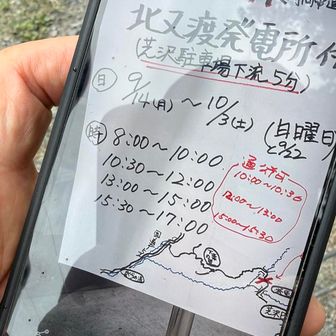 北又渡発電所付
(芝沢駐車場下流5分)
日 9/14(月)～10/3(土) (日曜日
と9/22
時 8:00～10:00
10:30～12:00
13:00～15:00
15:30～17:00
通行可
10:00～10:30
12:00～13:00
15:00～15:30